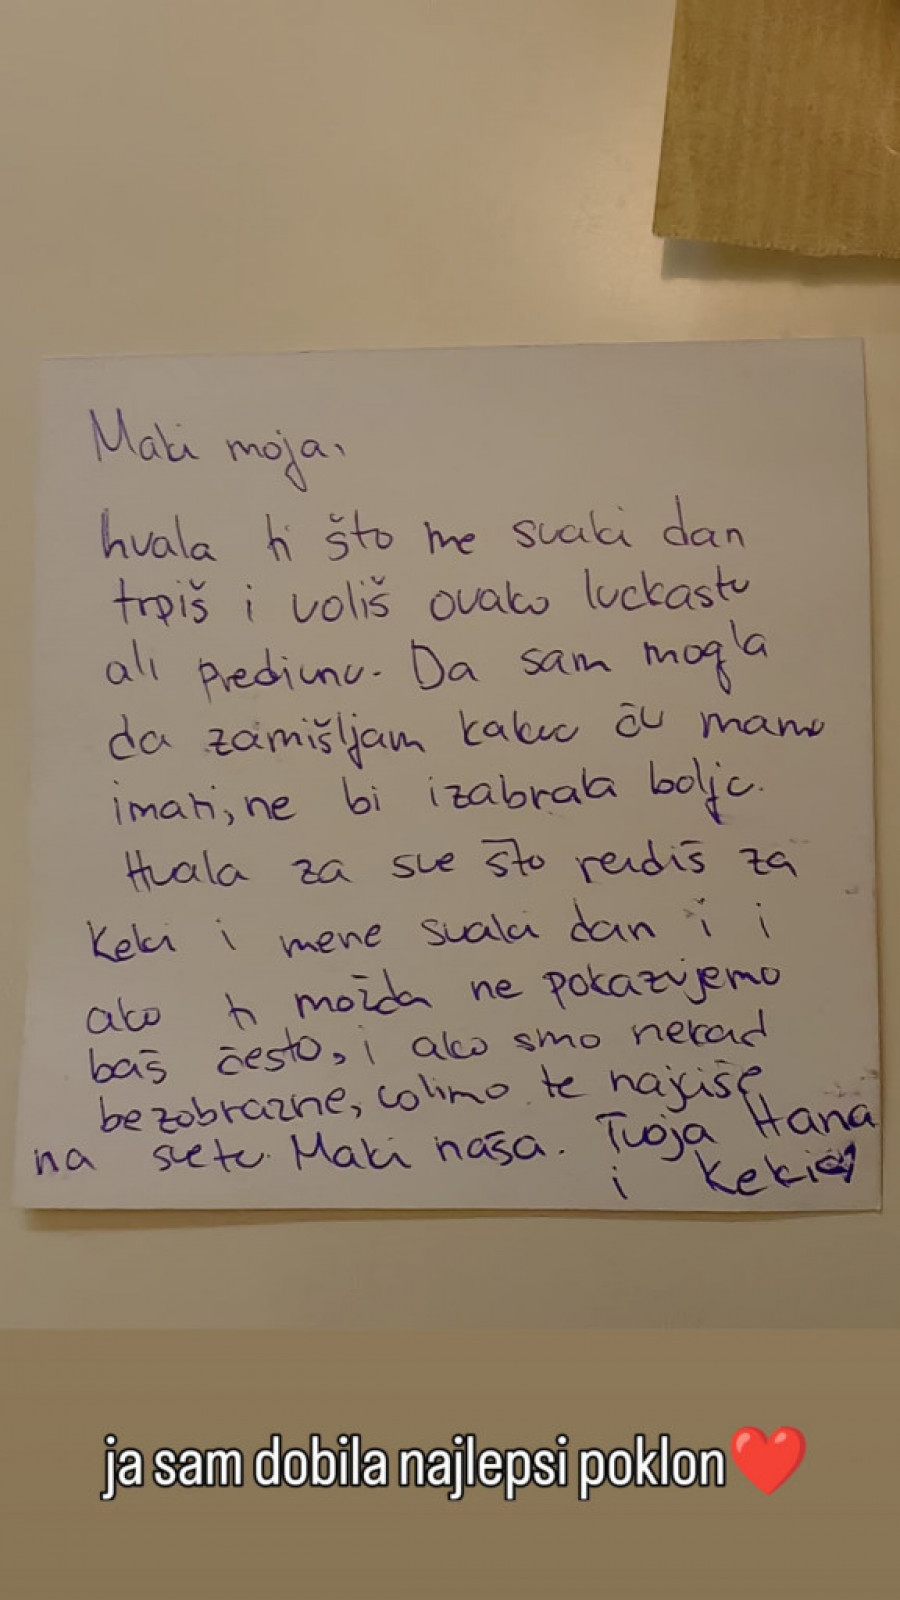 Maki moja,
hvala ti što me svaki dan
trpiš i voliš ovako luckastu
ali predivnu. Da sam mogla
da zamišljam kakvu ću mamu
imati, ne bi izabrala bolje.
Hvala za sve što radiš za
Keki i mene svaki dan i i
ako ti možda ne pokazujemo
baš često, i ako smo nekad
bezobrazne, volimo te najviše
na svetu. Maki naša. Tvoja Hana
i Keki
ja sam dobila najlepsi poklon❤️